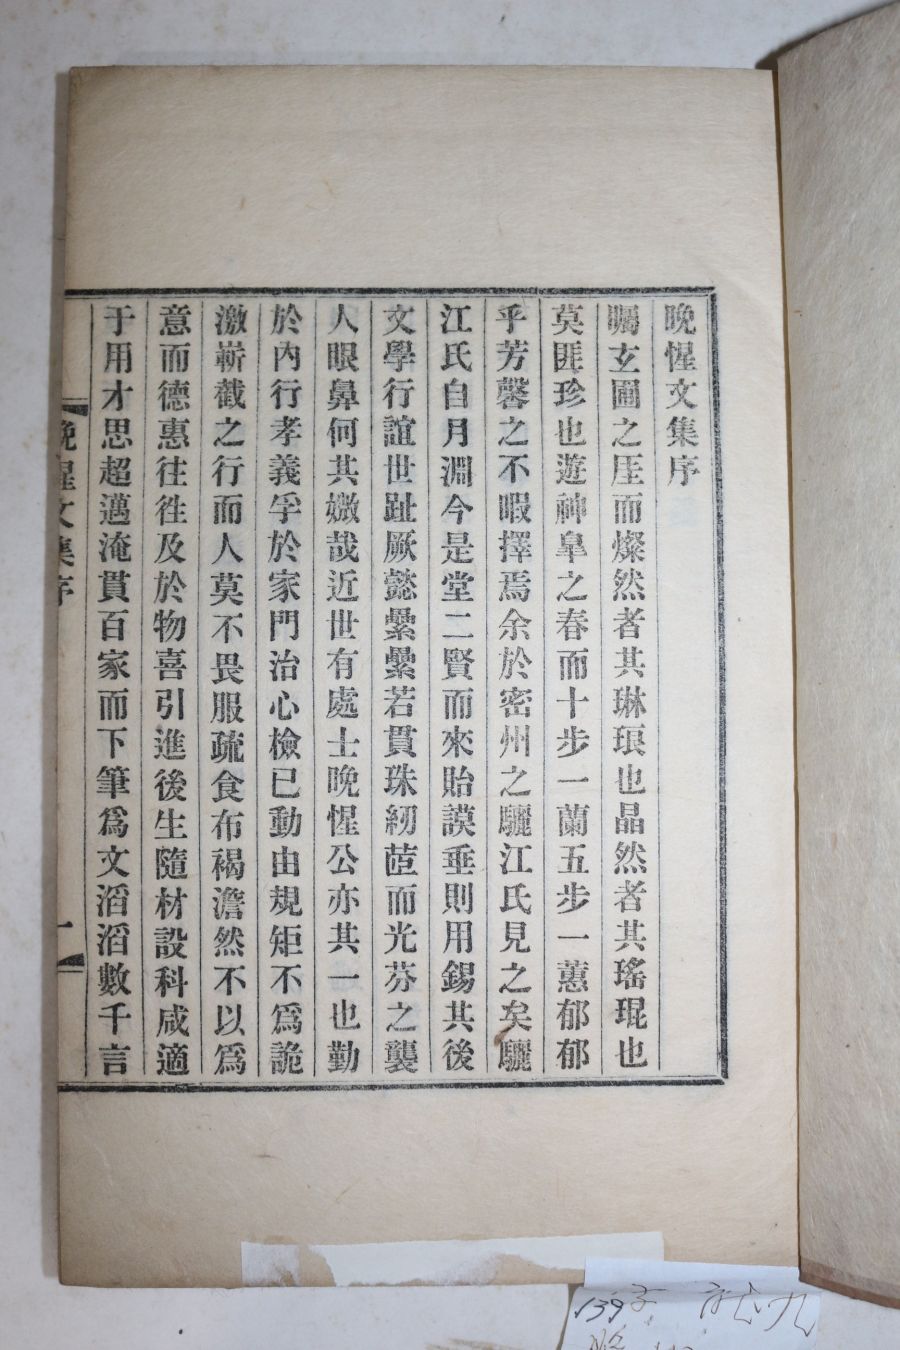 晩惺文集序
矚玄圃之厓而燦然者其琳琅也晶然者其瑤琨也
莫匪珍也遊神皐之春而十步一蘭五步一蕙郁郁
乎芳馨之不暇擇焉余於密州之驪江氏見之矣驪
江氏自月淵今是堂二賢而來貽謨垂則用錫其後
文學行誼世趾厥懿纍纍若貫珠紉茝而光芬之襲
人眼鼻何其媺哉近世有處士晩惺公亦其一也勤
於內行孝義孚於家門治心檢已動由規矩不爲詭
激嶄截之行而人莫不畏服疏食布褐澹然不以爲
意而德惠往徃及於物喜引進後生隨材設科咸適
于用才思超邁淹貫百家而下筆爲文滔滔數千言
晩惺文集序
一
139
九